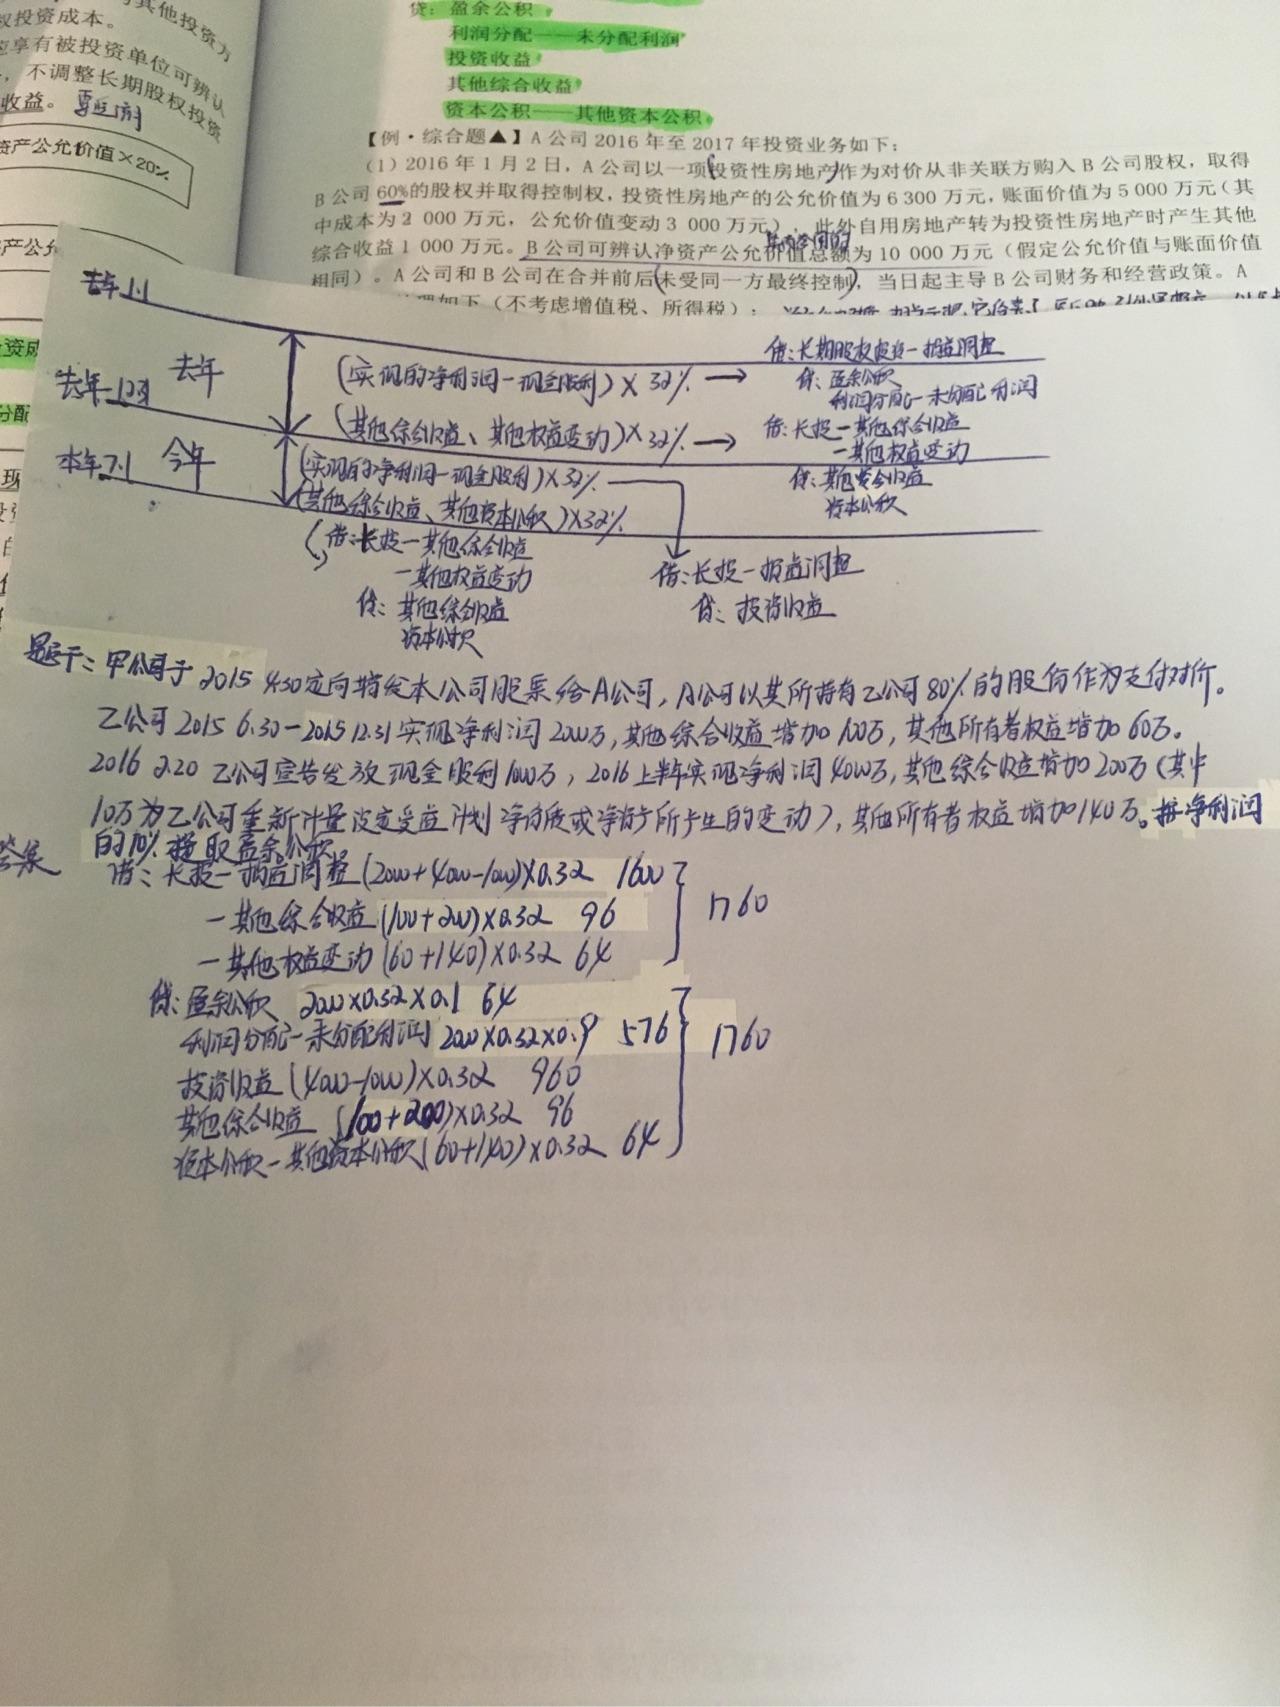 其他投资方
投资成本。
应享有被投资单位可辨认
,不调整长期股权投资
收益。
资产公允价值×20%
贷:盈余公积
利润分配——未分配利润
投资收益
其他综合收益
资本公积——其他资本公积
【例·综合题▲】A公司2016年至2017年投资业务如下:
(1)2016年1月2日,A公司以一项投资性房地产作为对价从非关联方购入B公司股权,取得
B公司60%的股权并取得控制权,投资性房地产的公允价值为6 300万元,账面价值为5 000万元(其
中成本为2 000万元,公允价值变动3 000万元),此外自用房地产转为投资性房地产时产生其他
综合收益1 000万元。B公司可辨认净资产公允价值总额为10 000万元(假定公允价值与账面价值
相同)。A公司和B公司在合并前后未受同一方最终控制,当日起主导B公司财务和经营政策。A
如下(不考虑增值税、所得税):
去年1.1
去年
(实现的净利润-现金股利)×32%→
借:长期股权投资-损益调整
贷:盈余公积
利润分配-未分配利润
去年12.31
(其他综合收益、其他权益变动)×32%→
借:长投-其他综合收益
-其他权益变动
贷:其他综合收益
资本公积
本年7.1 今年
(实现的净利润-现金股利)×32%
(其他综合收益、其他资本公积)×32%
借:长投-其他综合收益
-其他权益变动
贷:其他综合收益
资本公积
借:长投-损益调整
贷:投资收益
题干:甲公司于2015 4.30定向增发本公司股票给A公司,A公司以其所持有乙公司80%的股份作为支付对价。
乙公司2015 6.30-2015 12.31实现净利润2000万,其他综合收益增加100万,其他所有者权益增加60万。
2016 2.20 乙公司宣告发放现金股利1000万,2016上半年实现净利润4000万,其他综合收益增加200万(其中
10万为乙公司重新计量设定受益计划净负债或净资产所产生的变动),其他所有者权益增加140万。按净利润
的10%提取盈余公积
答案
借:长投-损益调整(2000+4000-1000)×0.32 1600
-其他综合收益(100+200)×0.32 96
-其他权益变动(60+140)×0.32 64
1760
贷:盈余公积 2000×0.32×0.1 64
利润分配-未分配利润 2000×0.32×0.9 576
投资收益(4000-1000)×0.32 960
其他综合收益(100+200)×0.32 96
资本公积-其他资本公积(60+140)×0.32 64
1760